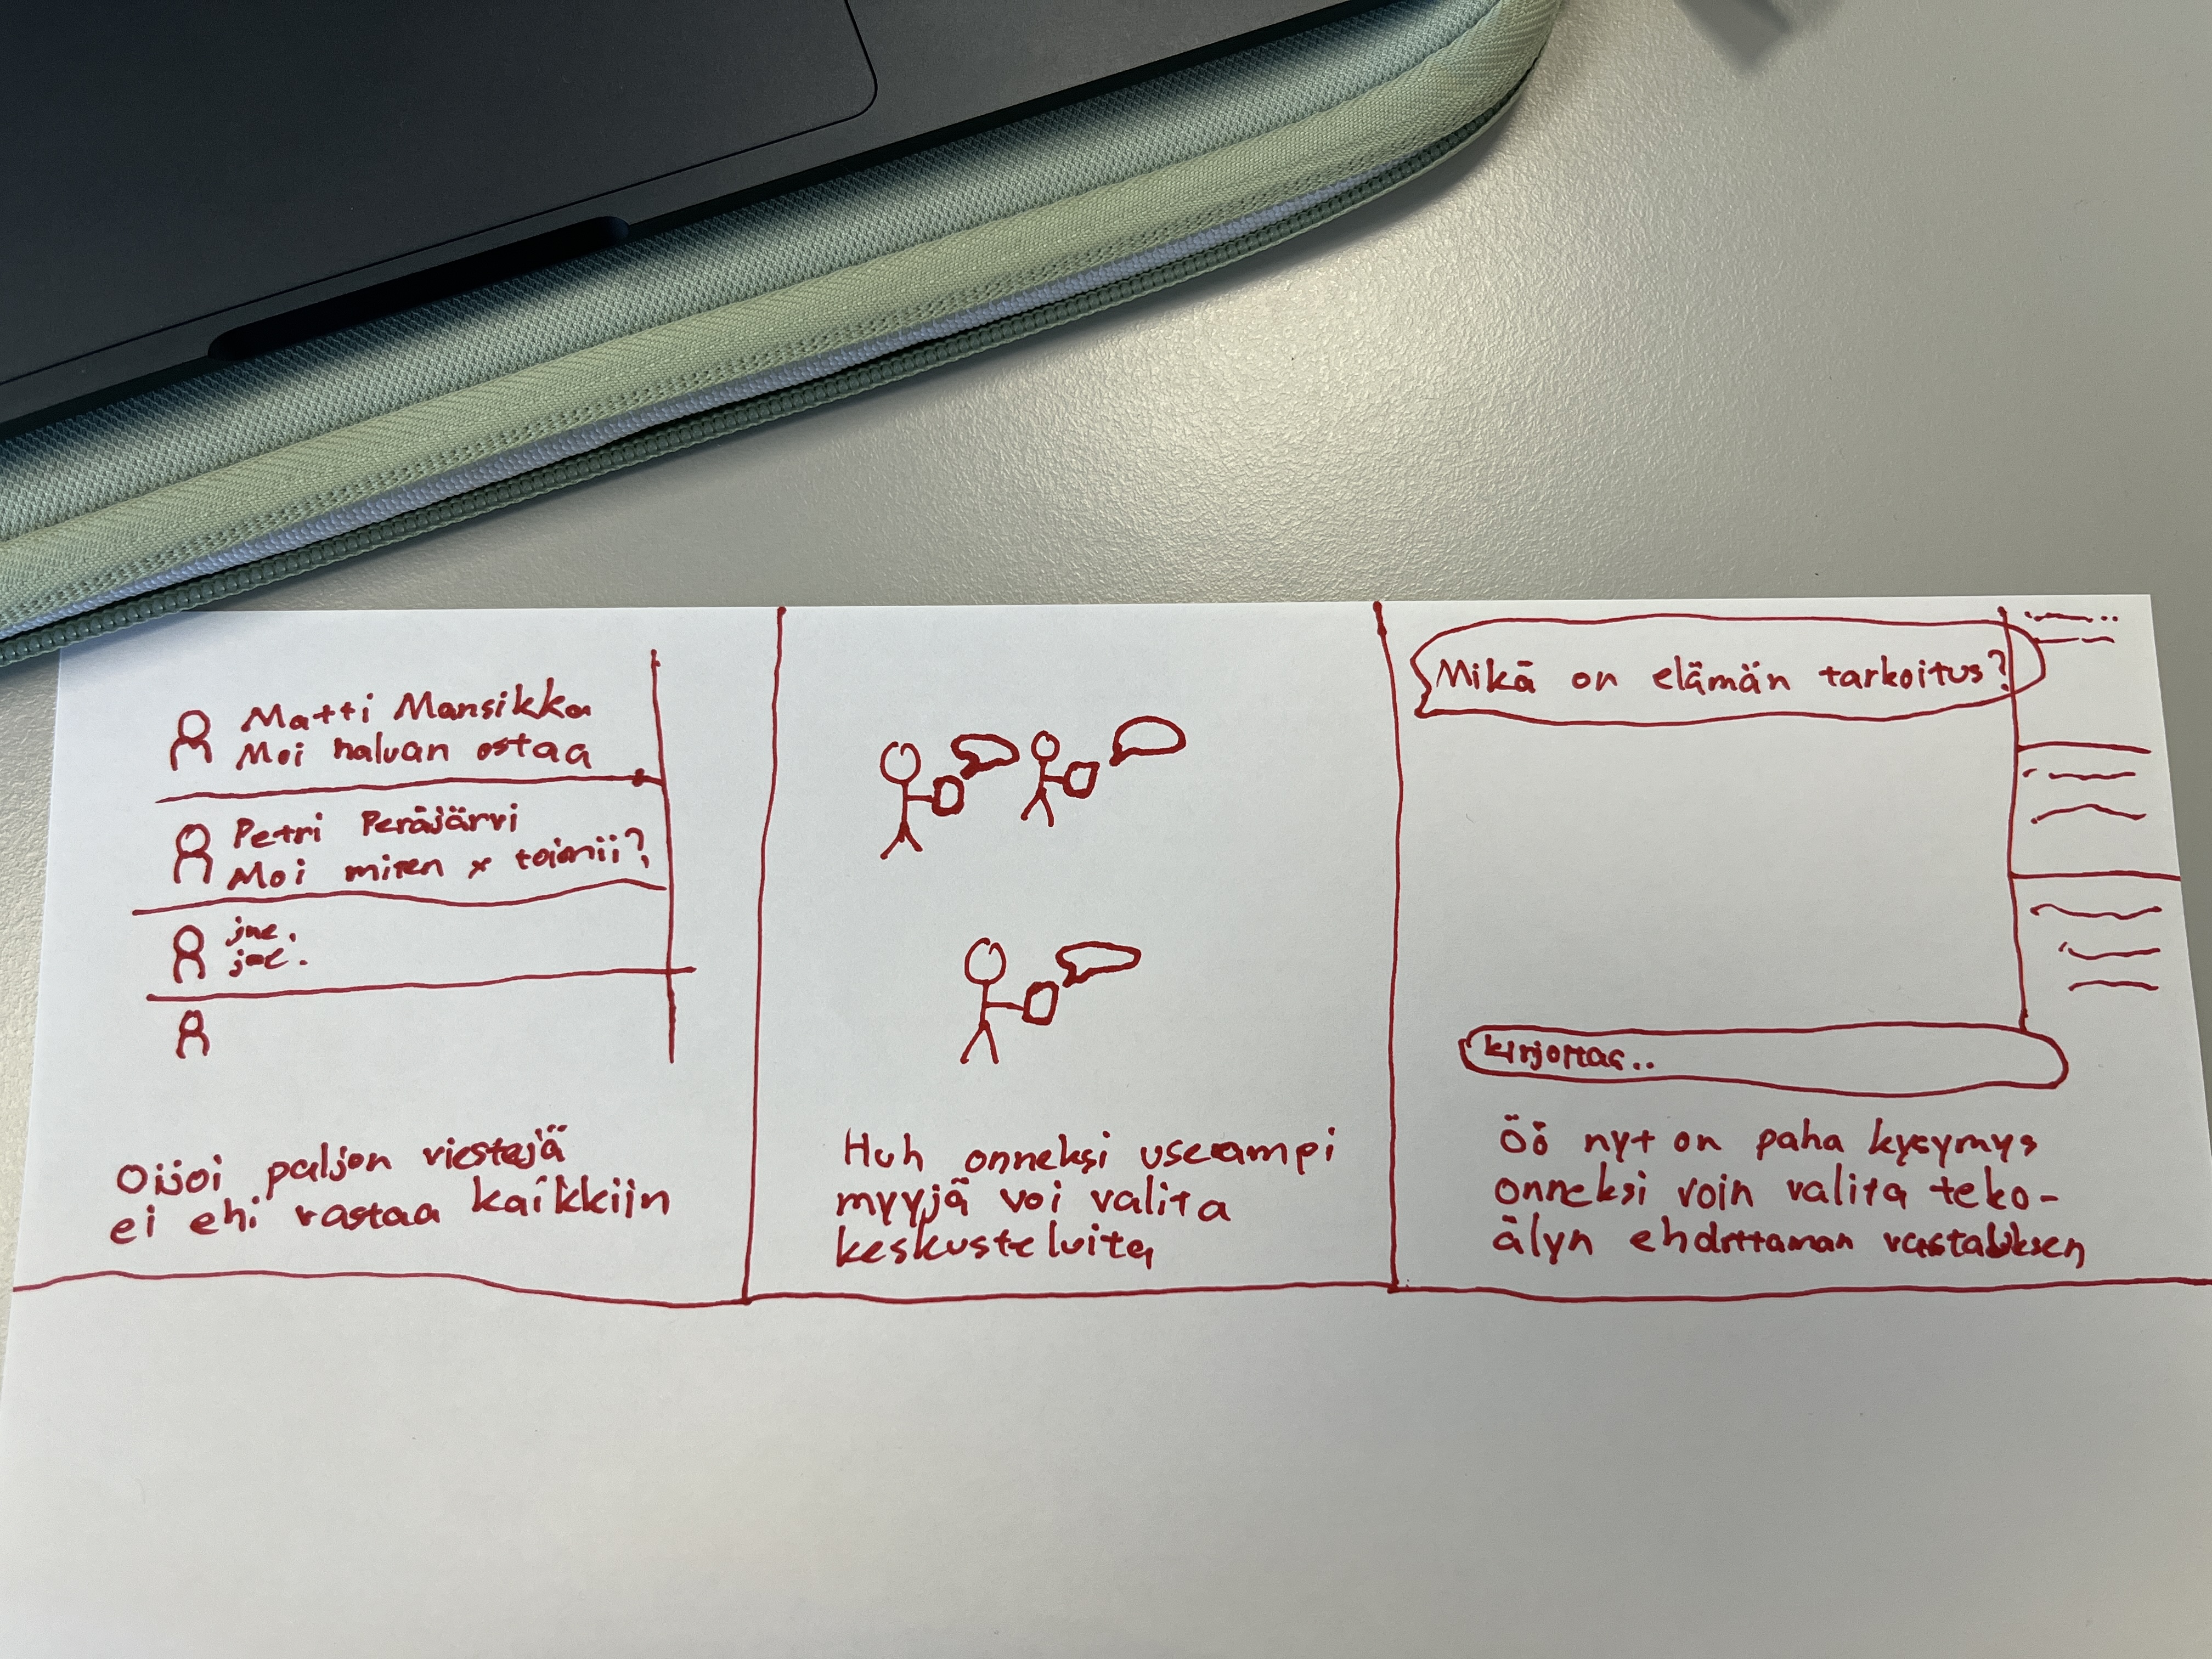 Matti Mansikka
Moi haluan ostaa
Petri Peräjärvi
Moi miten x toimii?
jne.
jne.
Oijoi paljon viestejä
ei ehi vastaa kaikkiin
Huh onneksi useampi
myyjä voi valita
keskusteluita
Mikä on elämän tarkoitus?
kirjoittaa..
Öö nyt on paha kysymys
onneksi voin valita teko-
älyn ehdottaman vastauksen